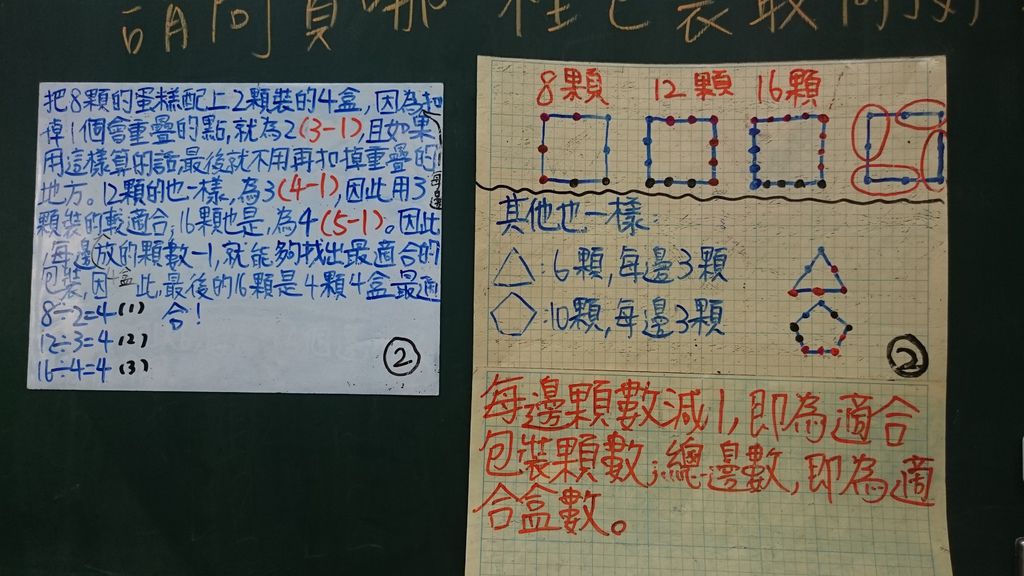 請問買哪種包裝最
把8顆的蛋糕配上2顆裝的4盒,因為扣
掉1個會重疊的點,就為2(3-1),且如果
用這樣算的話,最後就不用再扣掉重疊的
地方。12顆的也一樣,為3(4-1),因此用3
顆裝的較適合;16顆也是,為4(5-1)。因此
每邊放的顆數-1,就能夠找出最適合的
包裝,因此,最後的16顆是4顆4盒最適
合!
8÷2=4 (1)
12÷3=4 (2)
16÷4=4 (3)
②
8顆 12顆 16顆
其他也一樣:
:6顆,每邊3顆
:10顆,每邊3顆
②
每邊顆數減1,即為適合
包裝顆數;總邊數,即為適
合盒數。